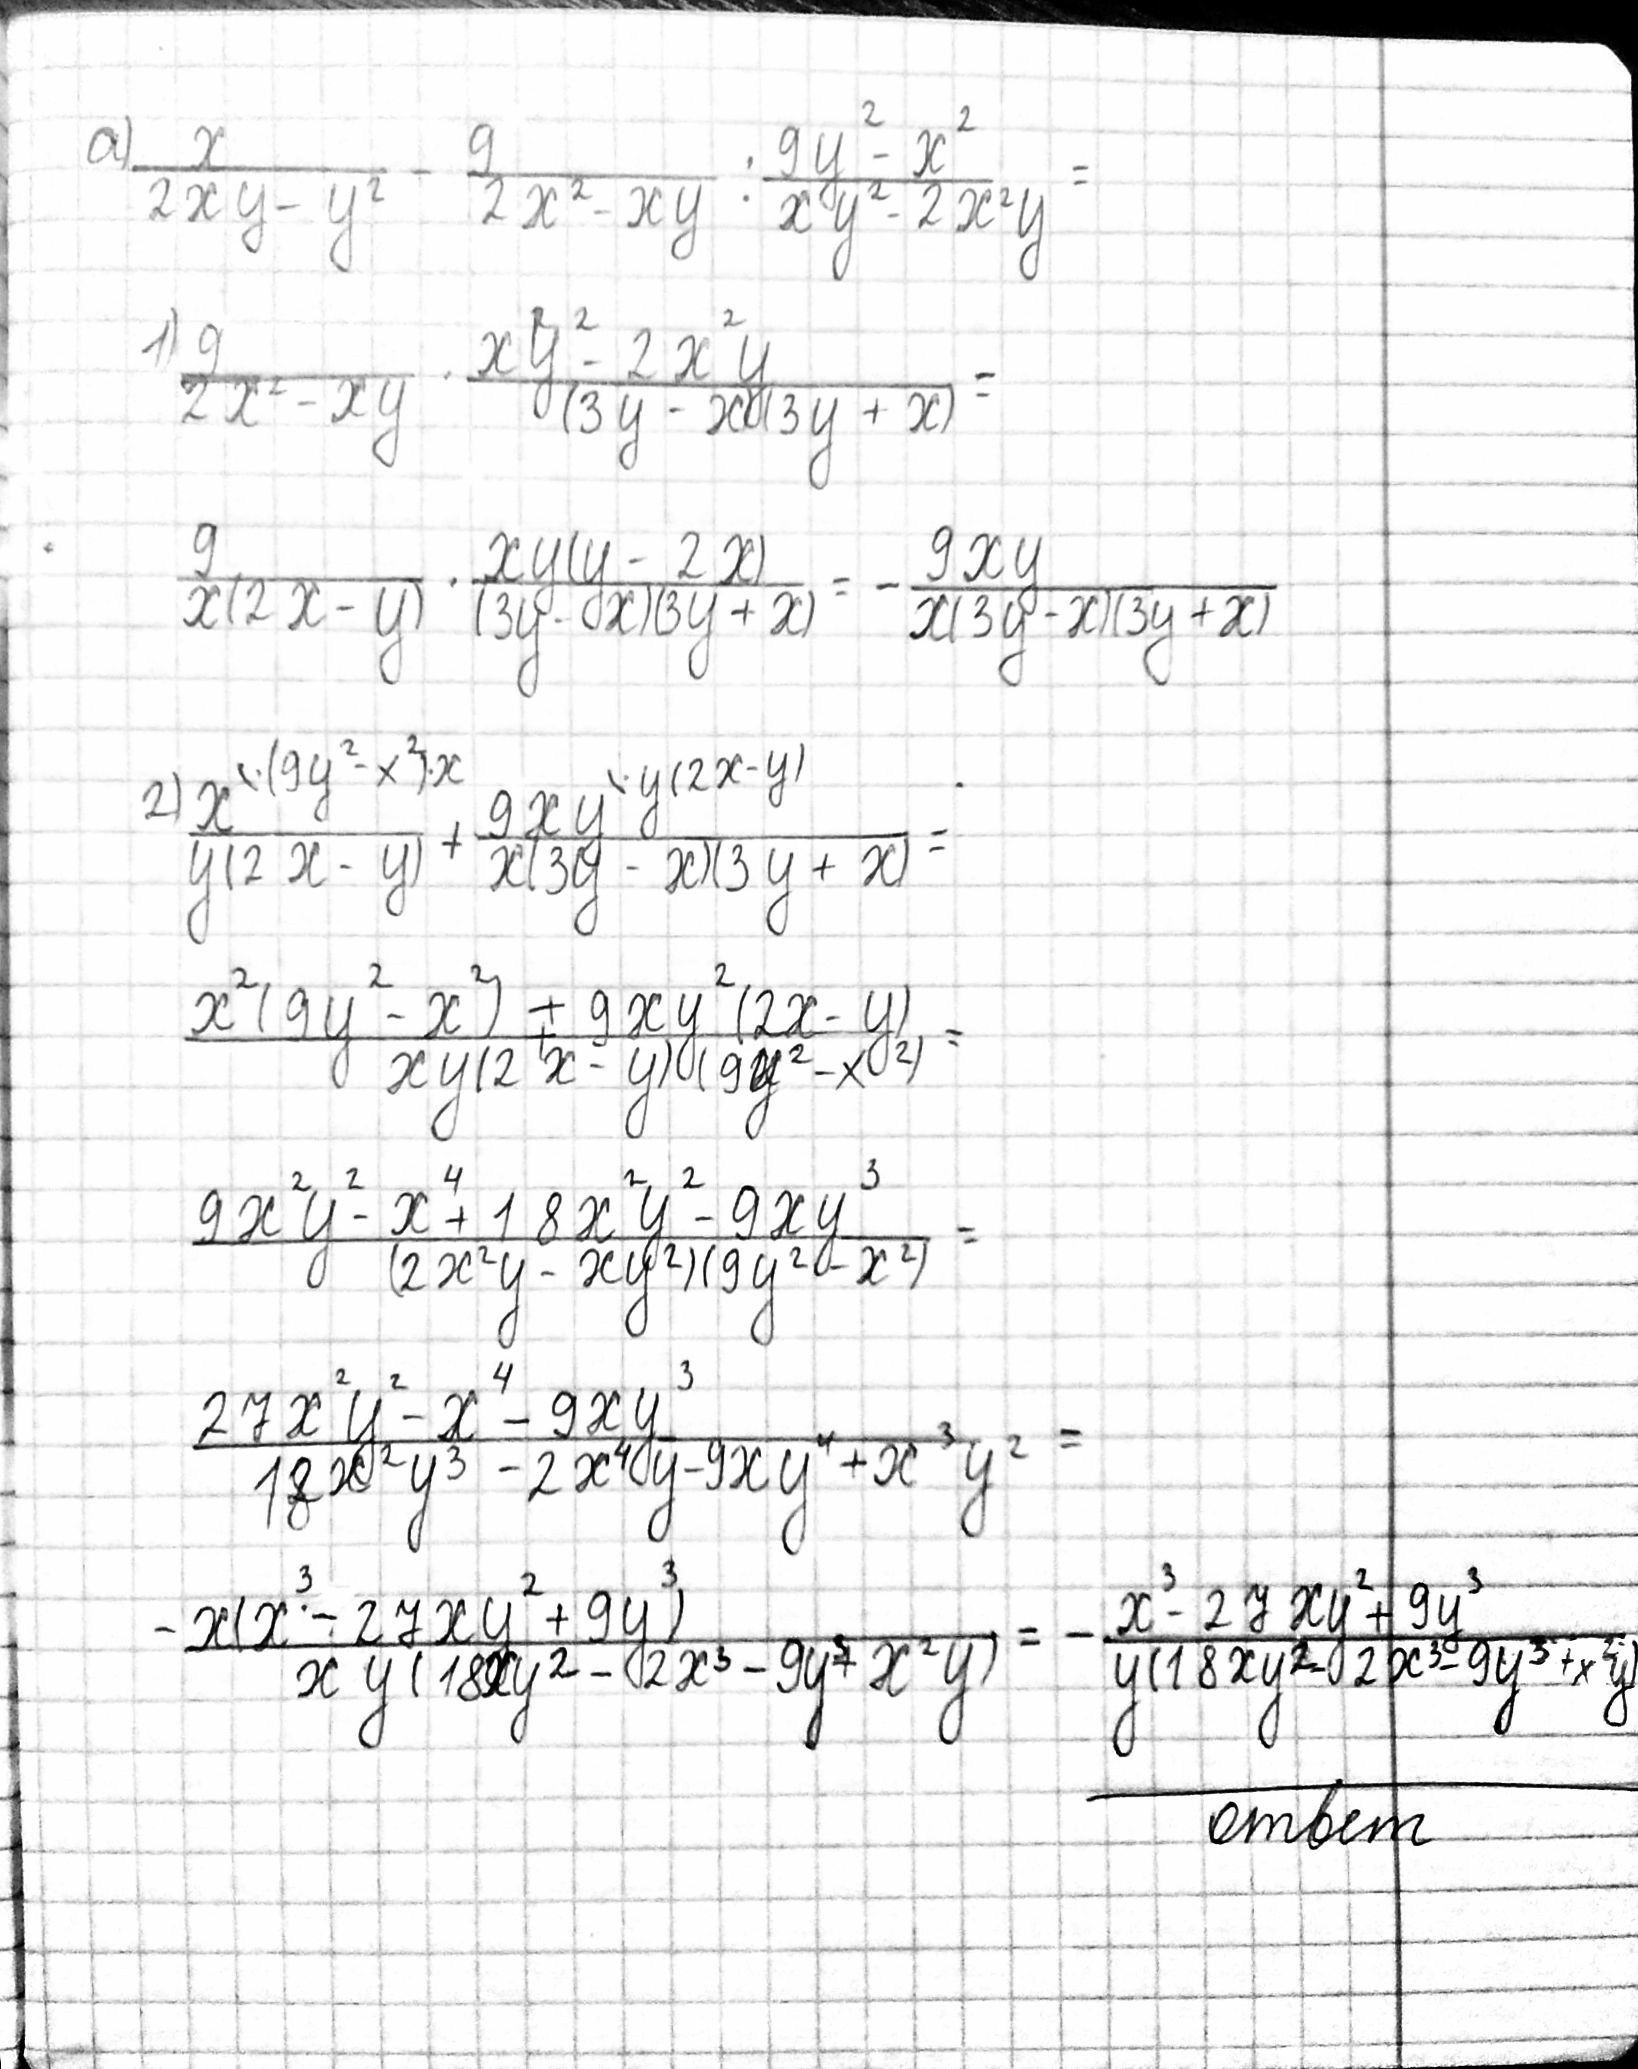 а) x/(2xy - y²) - 9/(2x² - xy) : (9y² - x²)/(xy² - 2x²y) =
1) 9/(2x² - xy) · (xy² - 2x²y)/((3y - x)(3y + x)) =
9/(x(2x - y)) · (xy(y - 2x))/((3y - x)(3y + x)) = - 9xy/(x(3y - x)(3y + x))
2) x\·(9y² - x²)·x/(y(2x - y)) + 9xy\·y(2x-y)/(x(3y - x)(3y + x)) =
(x²(9y² - x²) + 9xy²(2x - y))/(xy(2x - y)(9y² - x²)) =
(9x²y² - x⁴ + 18x²y² - 9xy³)/((2x²y - xy²)(9y² - x²)) =
(27x²y² - x⁴ - 9xy³)/(18x²y³ - 2x⁴y - 9xy⁴ + x³y²) =
- x(x³ - 27xy² + 9y³)/(xy(18xy² - 2x³ - 9y³ + x²y)) = - (x³ - 27xy² + 9y³)/(y(18xy² - 2x³ - 9y³ + x²y))
ответ